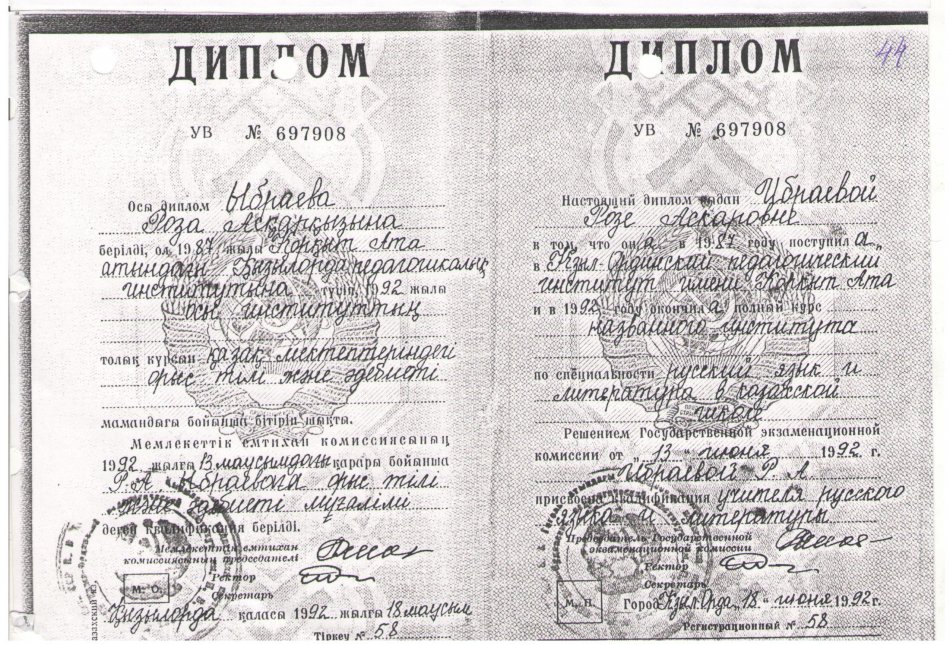 44
ДИПЛОМ
УВ № 697908
Осы диплом Ыбраева
Роза Асқанқызына
берілді, ол 1987 жылы Қорқыт Ата
атындағы Қызылорда педагогикалық
институтына түсіп, 1992 жылы
осы институттың
толық курсын қазақ мектептеріндегі
орыс тілі және әдебиеті
мамандығы бойынша бітіріп шықты.
Мемлекеттік емтихан комиссиясының
1992 жылғы 13 маусымдағы қарары бойынша
Р.А. Ыбраеваға орыс тілі
және әдебиеті мұғалімі
деген квалификация берілді.
Мемлекеттік емтихан
комиссиясының председателі
Ректор
М. О.
Секретарь
Қызылорда қаласы 1992 жылғы 18 маусым
Тіркеу № 58
ДИПЛОМ
УВ № 697908
Настоящий диплом выдан Ибраевой
Розе Аскановне
в том, что она в 1987 году поступила
в Кзыл-Ординский педагогический
институт имени Коркыт Ата
и в 1992 году окончила полный курс
названного института
по специальности русский язык и
литература в казахской
школе
Решением Государственной экзаменационной
комиссии от „13" июня 1992 г.
Ибраевой Р. А.
присвоена квалификация учителя русского
языка и литературы
Председатель Государственной
экзаменационной комиссии
Ректор
Секретарь
М. П.
Город Кзыл-Орда, 18 " июня 1992 г.
Регистрационный № 58